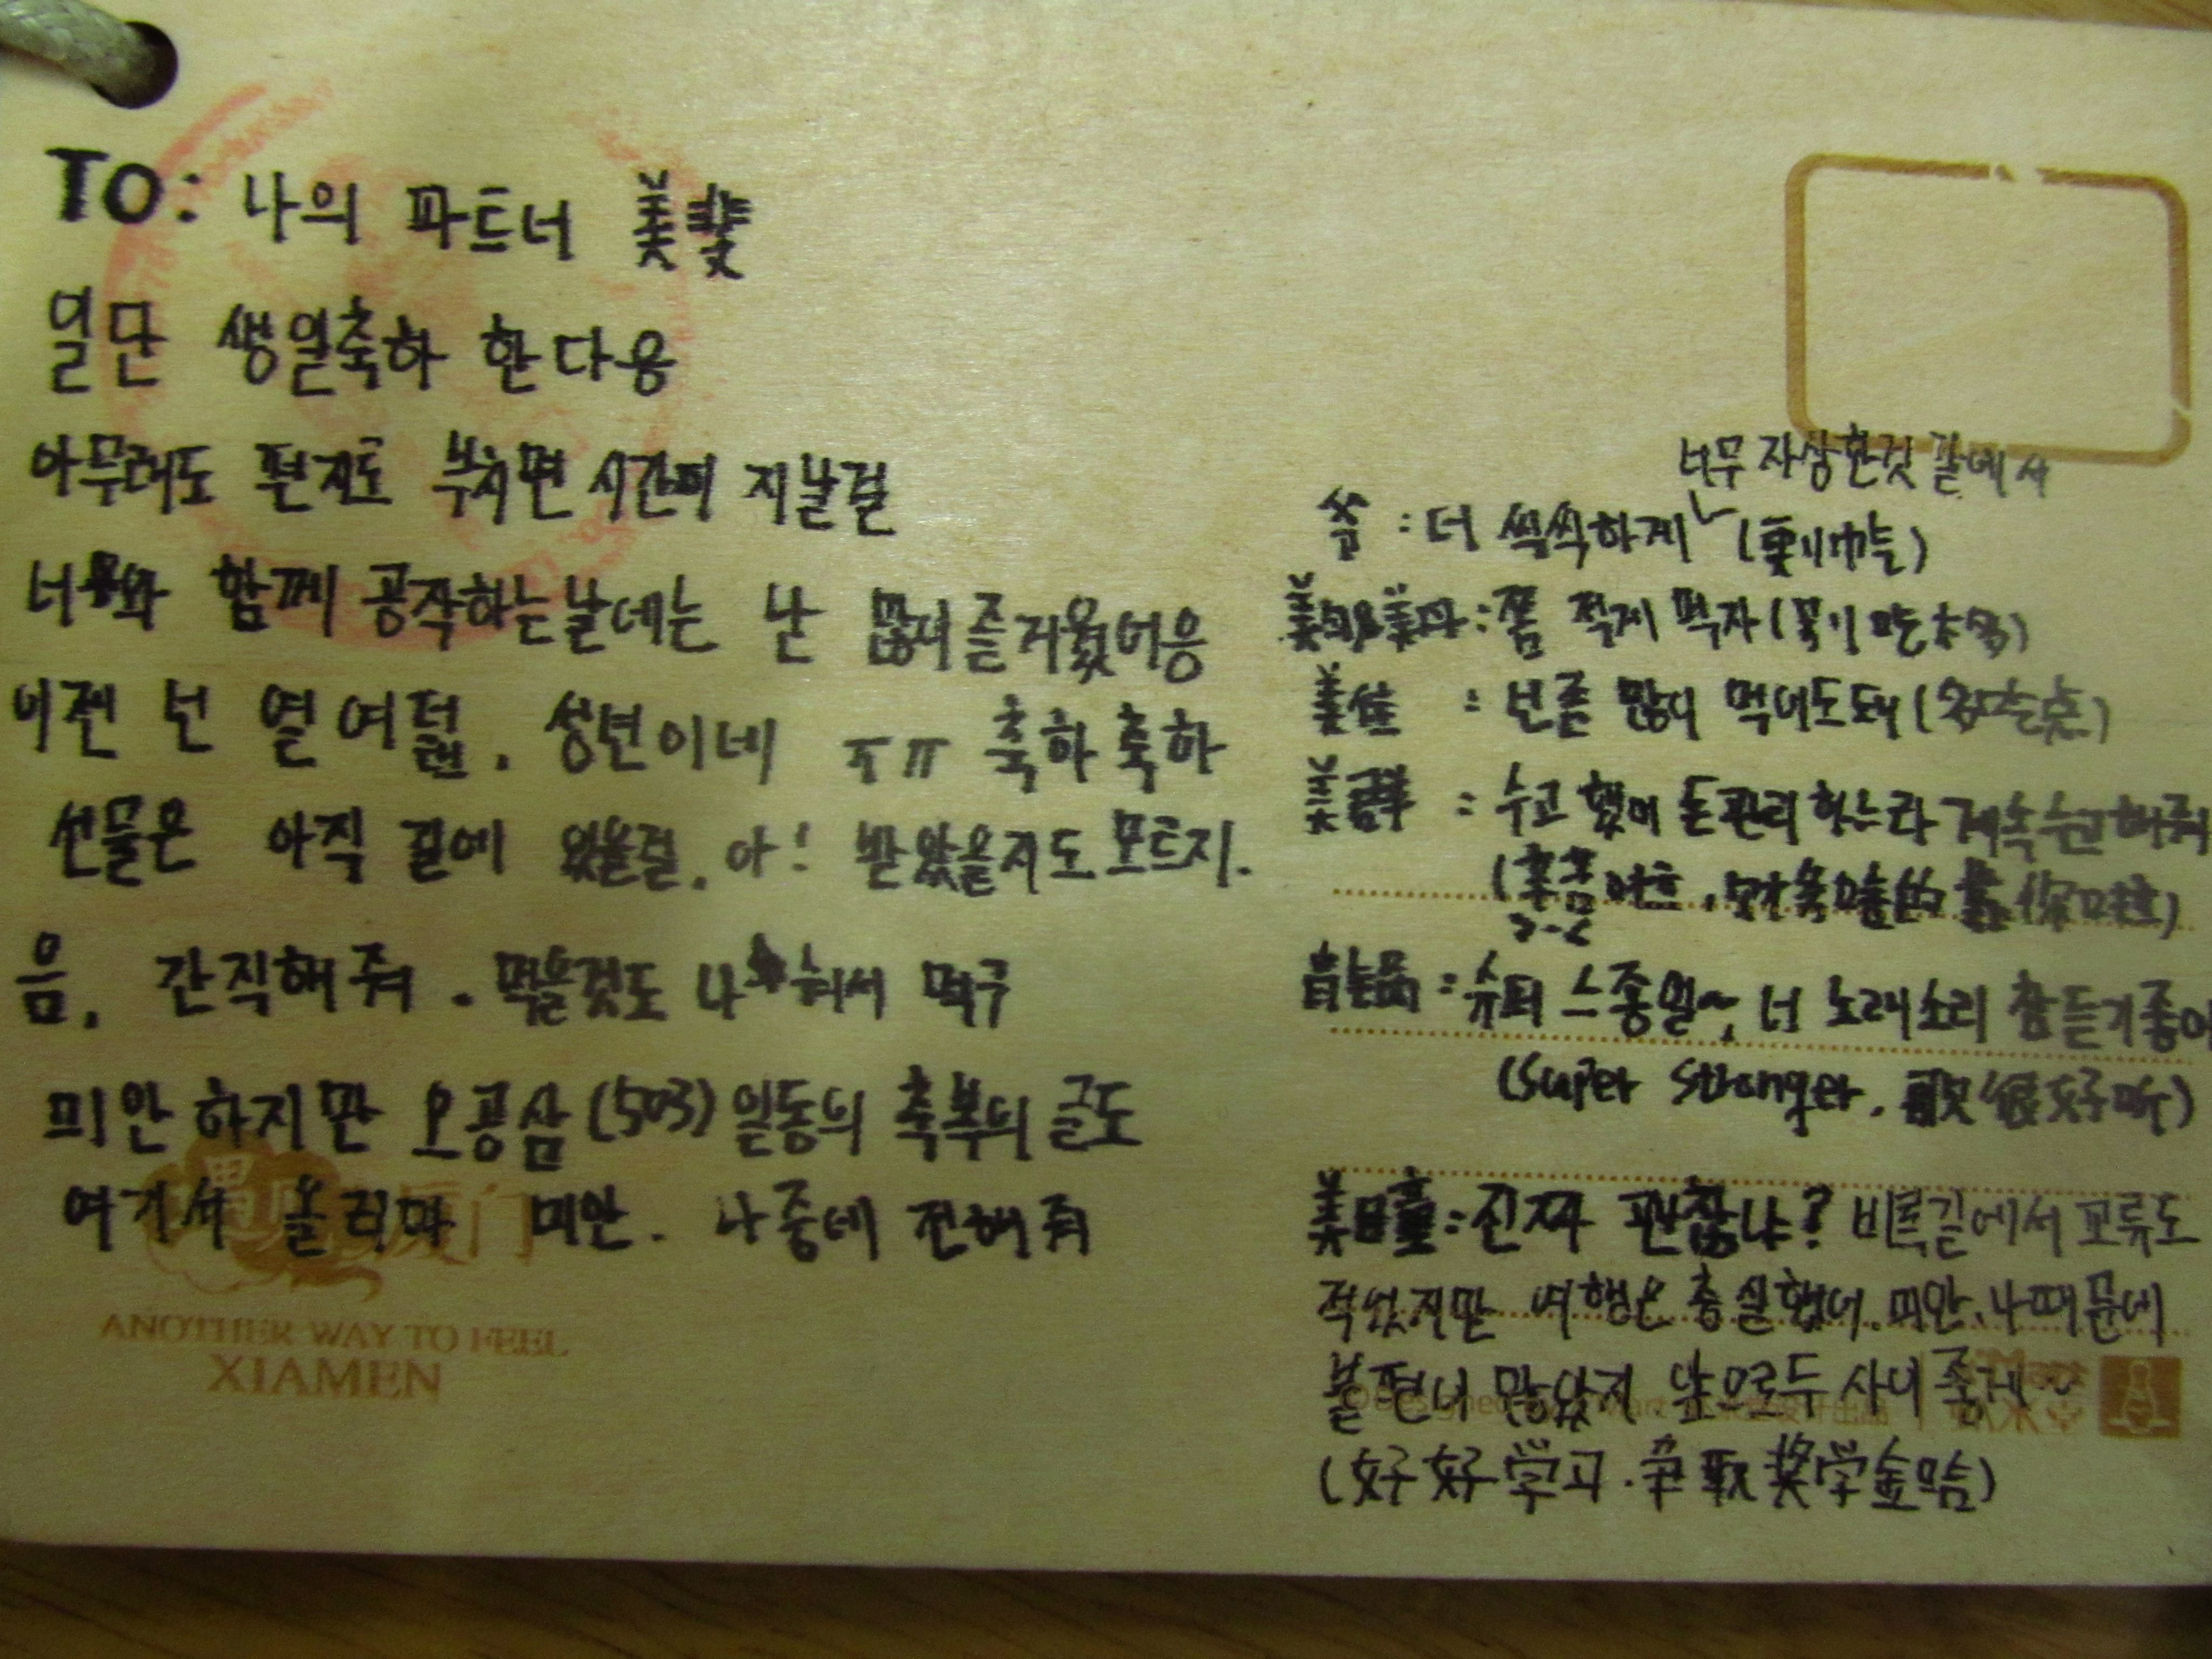 TO: 나의 파트너 美斐
일단 생일축하 한다용
아무래도 편지도 부치면 시간이 지날걸
너와 함께 공작하는날에는 난 많이 즐거웠어응
이젠 넌 열 여덟. 성년이네 ㅠㅠ 축하 축하
선물은 아직 길에 있을걸. 아! 받았을지도 모르지.
음. 간직해 줘. 먹을것도 나눠서 먹구
미안 하지만 오공삼(503) 일동의 축복의 글도
여기서 올리마 미안. 나중에 전해줘
ANOTHER WAY TO FEEL
XIAMEN
너무 자상한것 같애서
: 더 씩씩하게
: 쫌 적게 먹자
美佳 : 넌 좀 많이 먹어도 돼
: 수고 했어 돈관리 하느라 계속 수고해줘
: 슈퍼 스중일~, 너 노래소리 참 듣기좋아
(Super Stronger. 歌很好听)
: 진짜 괜찮냐? 비록 길에서 교류도
적었지만 여행은 충실했어. 미안. 나때문에
불편이 많았지 앞으로두 사이 좋게
(好好学习. 争取奖学金哈)